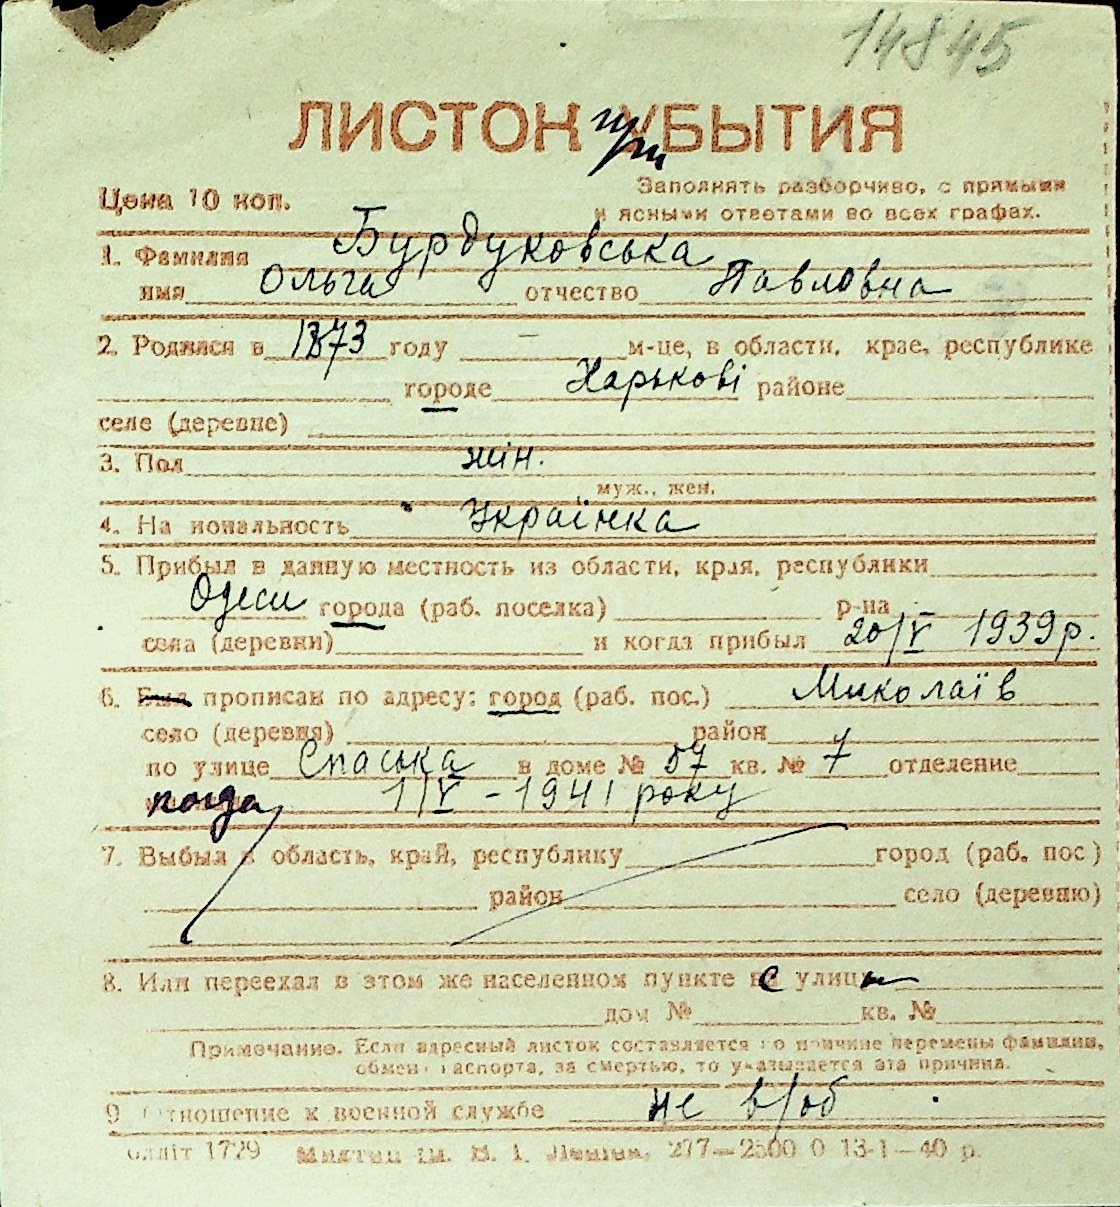 14845
ЛИСТОК при УБЫТИЯ
Цена 10 коп.
Заполнять разборчиво, с прямыми
и ясными ответами во всех графах.
1. Фамилия Бурдуковська
имя Ольга отчество Павловна
2. Родился в 1873 году — м-це, в области, крае, республике
городе Харькові районе
селе (деревне)
3. Пол жін.
муж., жен.
4. На иональность Українка
5. Прибыл в данную местность из области, края, республики
Одеси города (раб. поселка) р-на
села (деревни) и когда прибыл 20/V 1939 р.
6. Был прописан по адресу: город (раб. пос.) Миколаїв
село (деревня) район
по улице Спаська в доме № 57 кв. № 7 отделение
когда 1/V - 1941 року
7. Выбыл в область, край, республику город (раб. пос )
район село (деревню)
8. Или переехал в этом же населенном пункте с улицы
дом № кв. №
Примечание. Если адресный листок составляется по причине перемены фамилии,
обмен паспорта, за смертью, то указывается эта причина.
9 Отношение к военной службе не в/об
блліт 1729 им. В. І. Леніна, 277—2500 0 13-1—40 р.